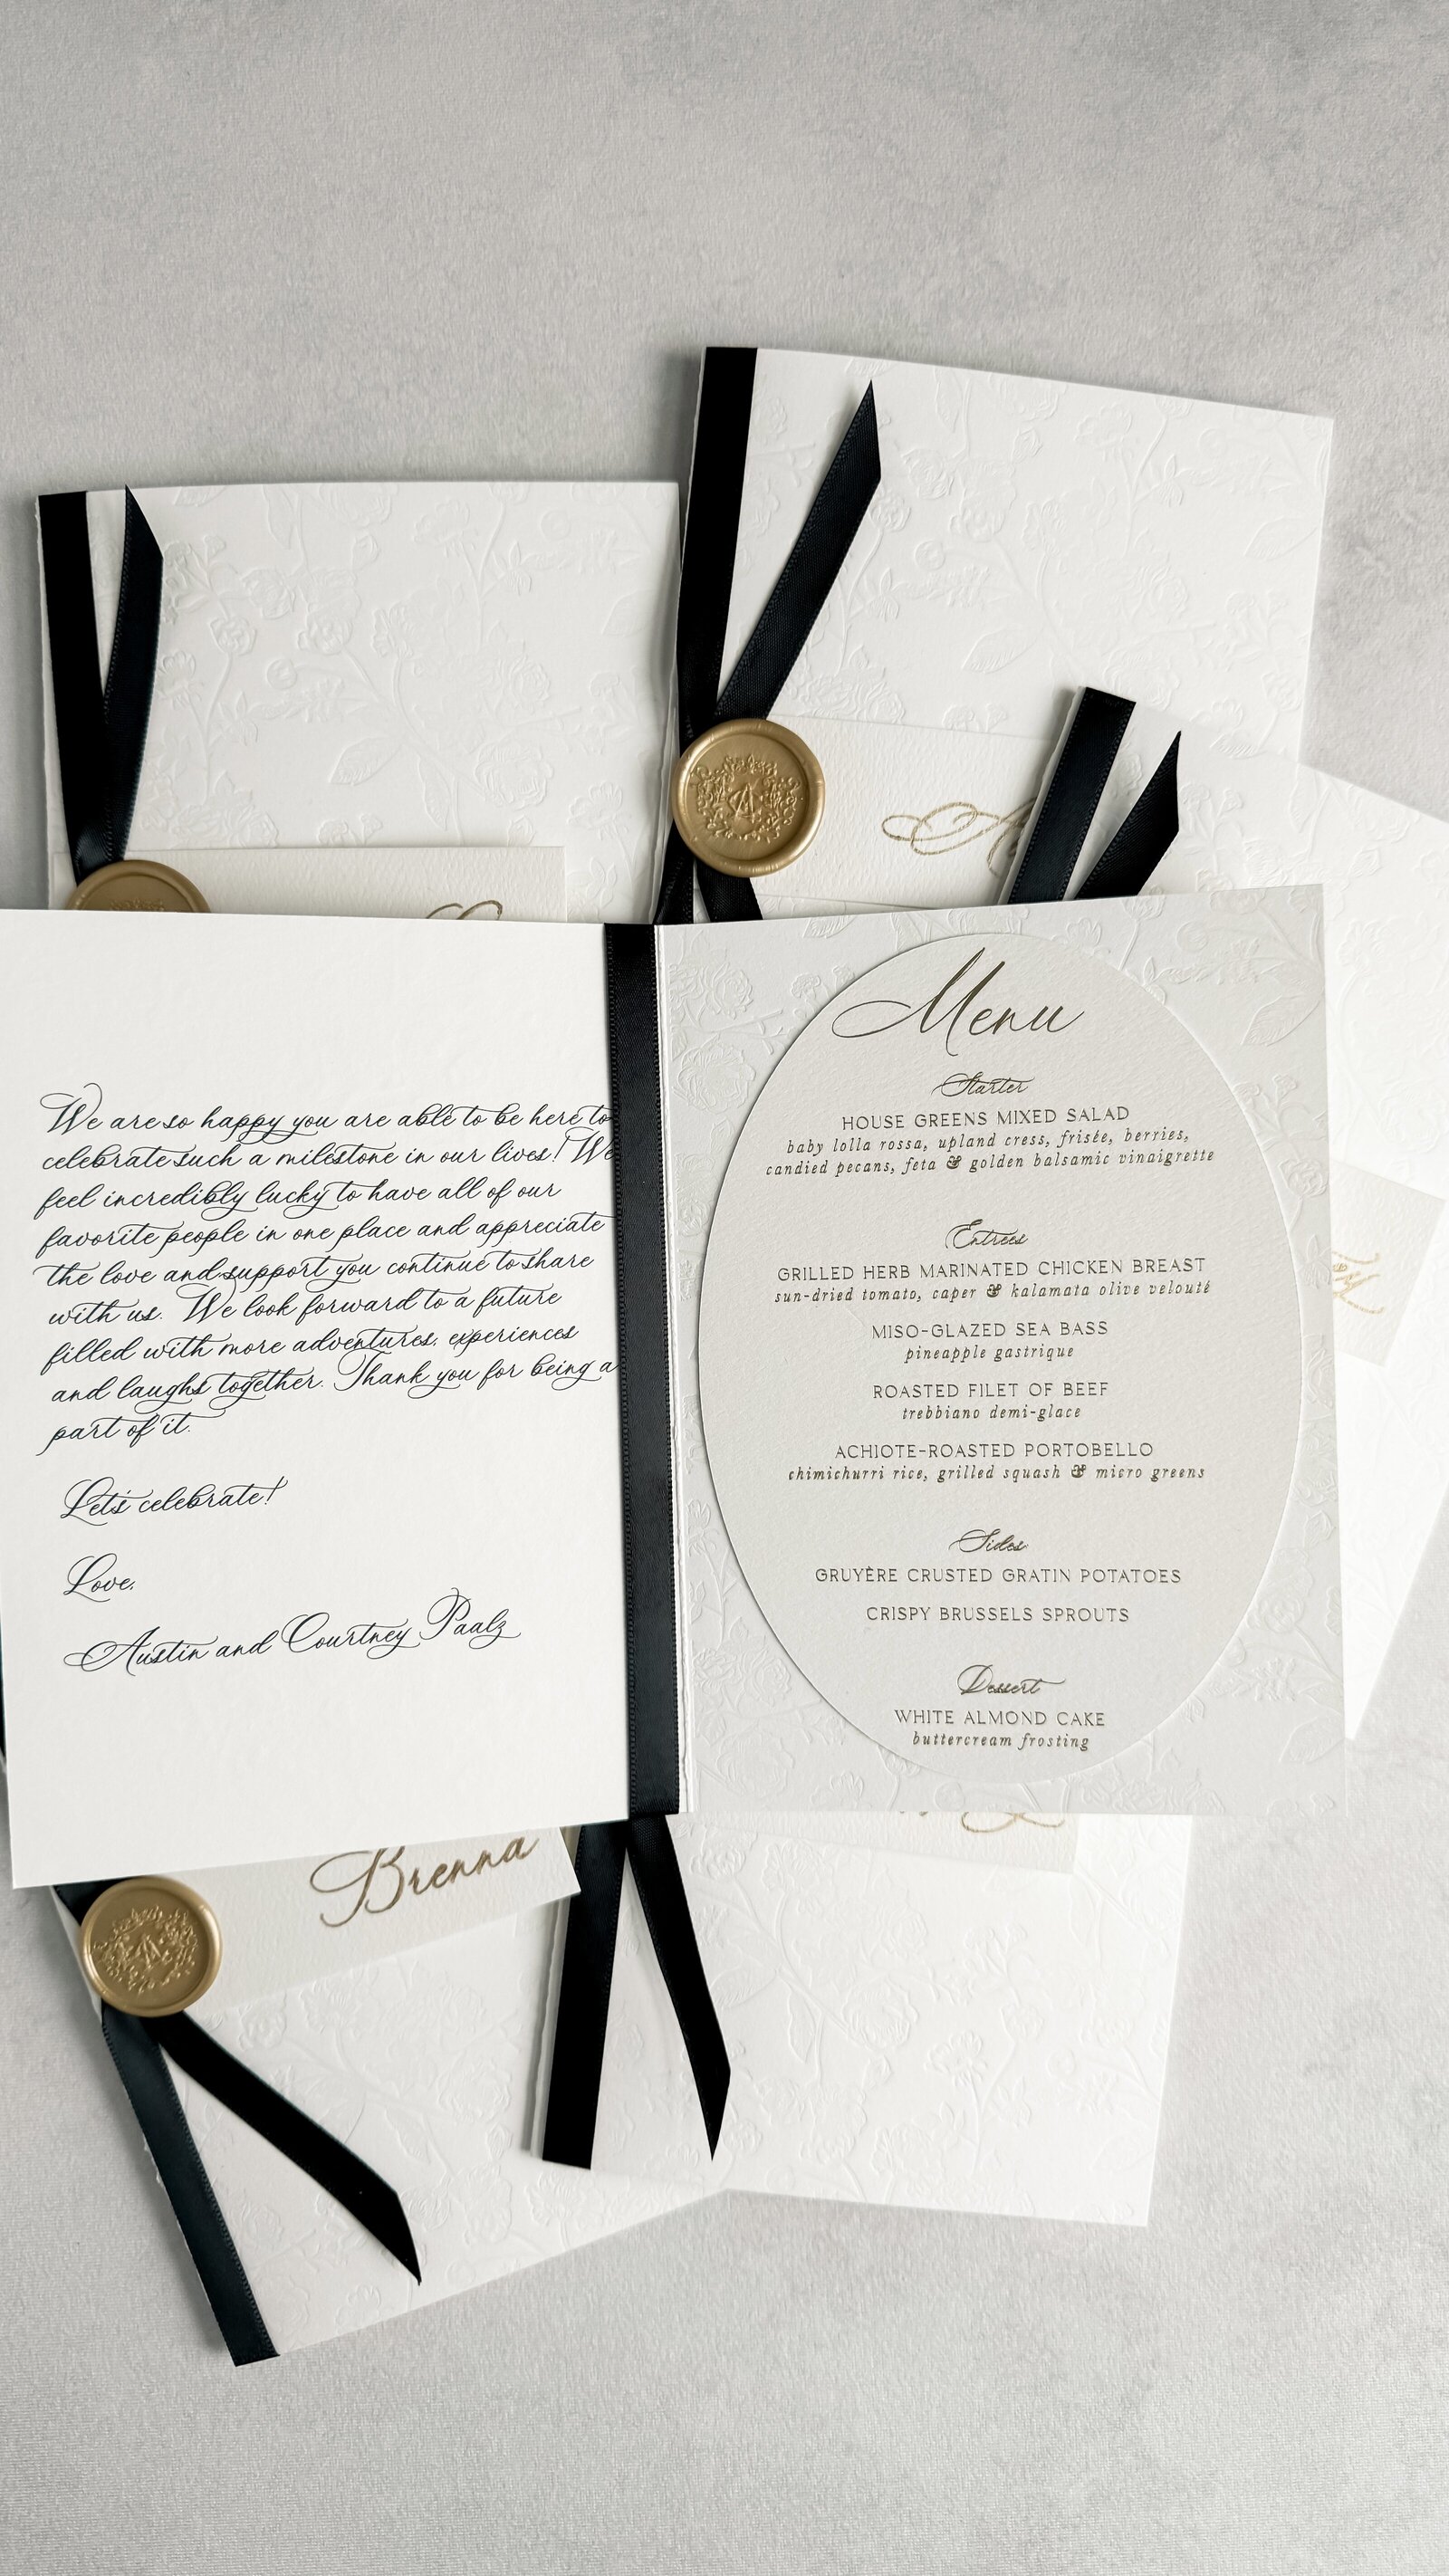 We are so happy you are able to be here to
celebrate such a milestone in our lives! We
feel incredibly lucky to have all of our
favorite people in one place and appreciate
the love and support you continue to share
with us. We look forward to a future
filled with more adventures, experiences
and laughs together. Thank you for being a
part of it.
Let's celebrate!
Love,
Austin and Courtney Paalz
Menu
Starter
HOUSE GREENS MIXED SALAD
baby lolla rossa, upland cress, frisée, berries,
candied pecans, feta & golden balsamic vinaigrette
Entrées
GRILLED HERB MARINATED CHICKEN BREAST
sun-dried tomato, caper & kalamata olive velouté
MISO-GLAZED SEA BASS
pineapple gastrique
ROASTED FILET OF BEEF
trebbiano demi-glace
ACHIOTE-ROASTED PORTOBELLO
chimichurri rice, grilled squash & micro greens
Sides
GRUYÈRE CRUSTED GRATIN POTATOES
CRISPY BRUSSELS SPROUTS
Dessert
WHITE ALMOND CAKE
buttercream frosting
Brenna